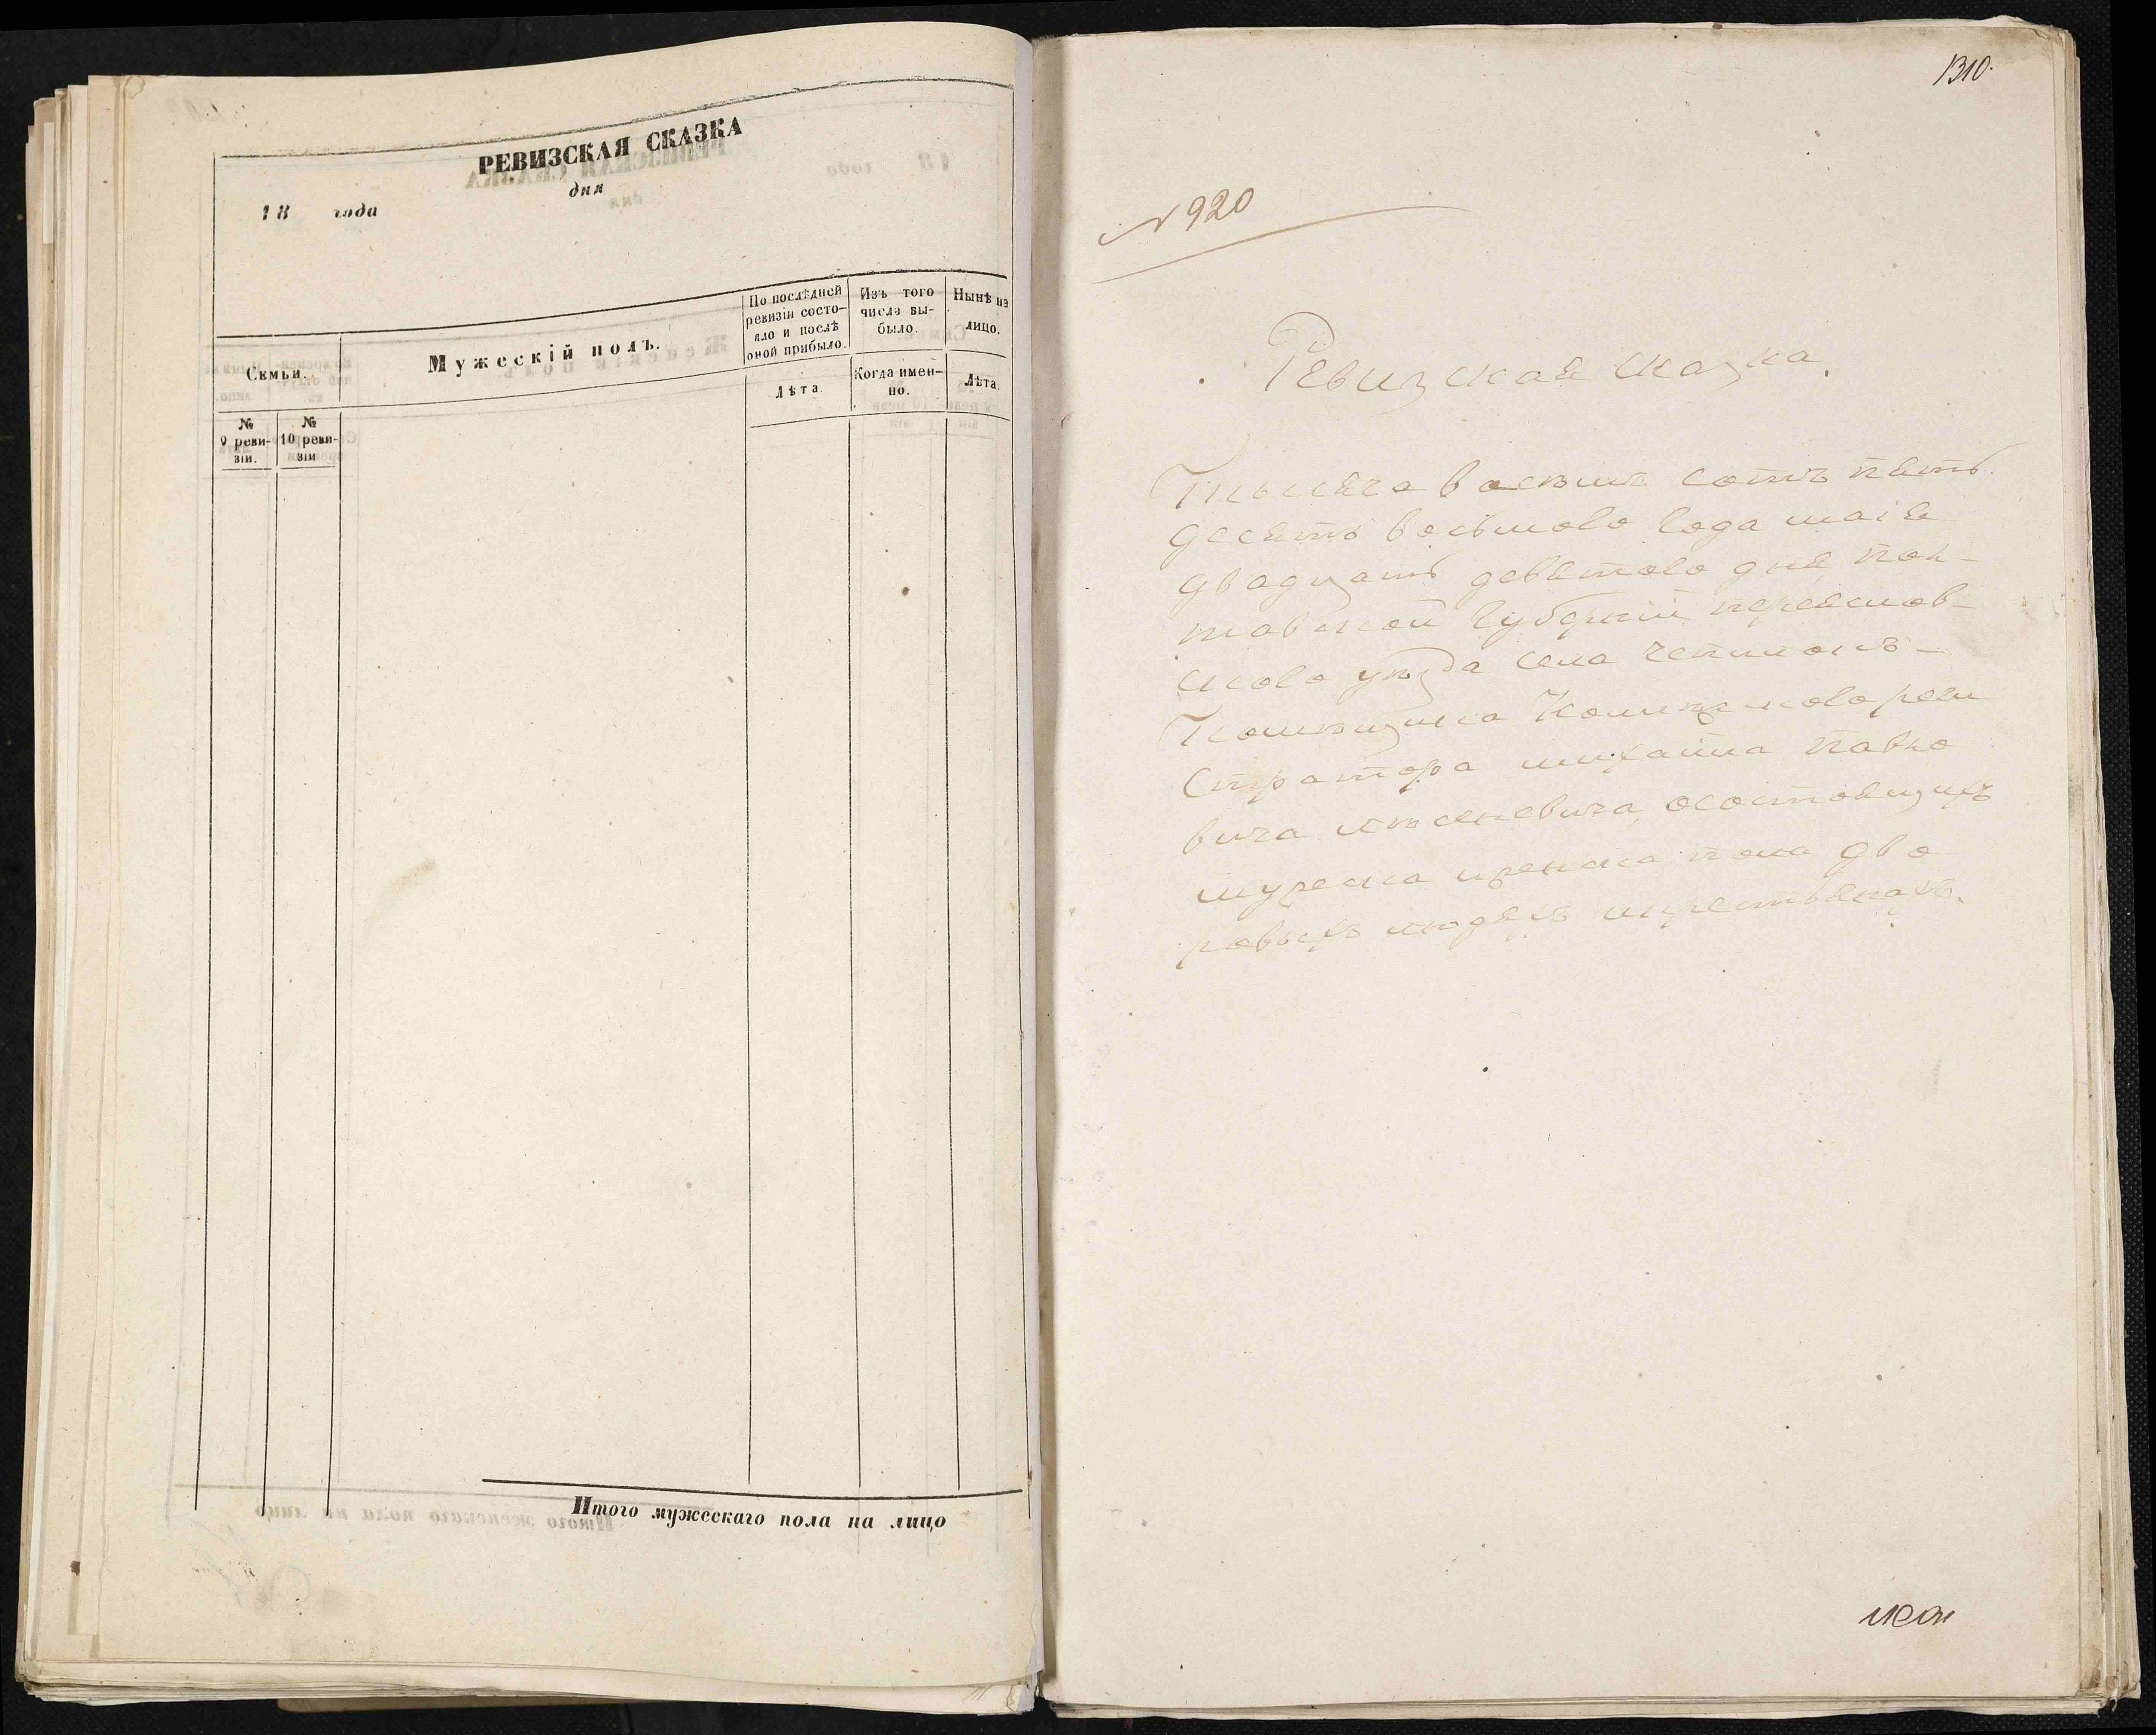 РЕВИЗСКАЯ СКАЗКА
18 года дня
Семьи.
Мужескій полъ.
По послѣдней ревизіи состояло и послѣ оной прибыло.
Изъ того числа выбыло.
Нынѣ на лицо.
№ 9 ревизіи.
№ 10 ревизіи
Лѣта.
Когда именно.
Лѣта.
Итого мужескаго пола на лицо
1310.
№ 920
Ревизская сказка.
Тысяча восѣмъ сотъ пять
десятъ восьмого года маія
двадцать девятого дня, пол-
тавской губерніи переяслов-
ского уѣзда села
Помѣщика Колѣжского реги
стратора михайла павло
вича осостоящихъ
мужеска иженска пола дво
ровыхъ людяхъ икрестьянахъ.